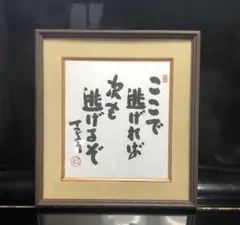 ここで
逃げれば
次も
逃げるぞ